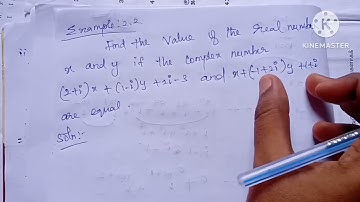 KINEMASTER
Example: 2.2
Find the value of the real number
x and y if the complex number
(2+i)x + (1-i)y + 2i-3 and x+(-1+2i)y+1+i
are equal.
Soln:-